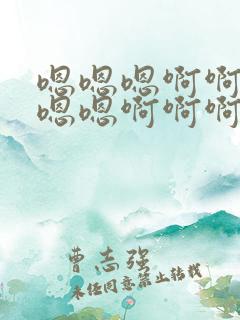 嗯嗯嗯啊啊
嗯嗯啊啊啊
曹志强
未经同意禁止转载